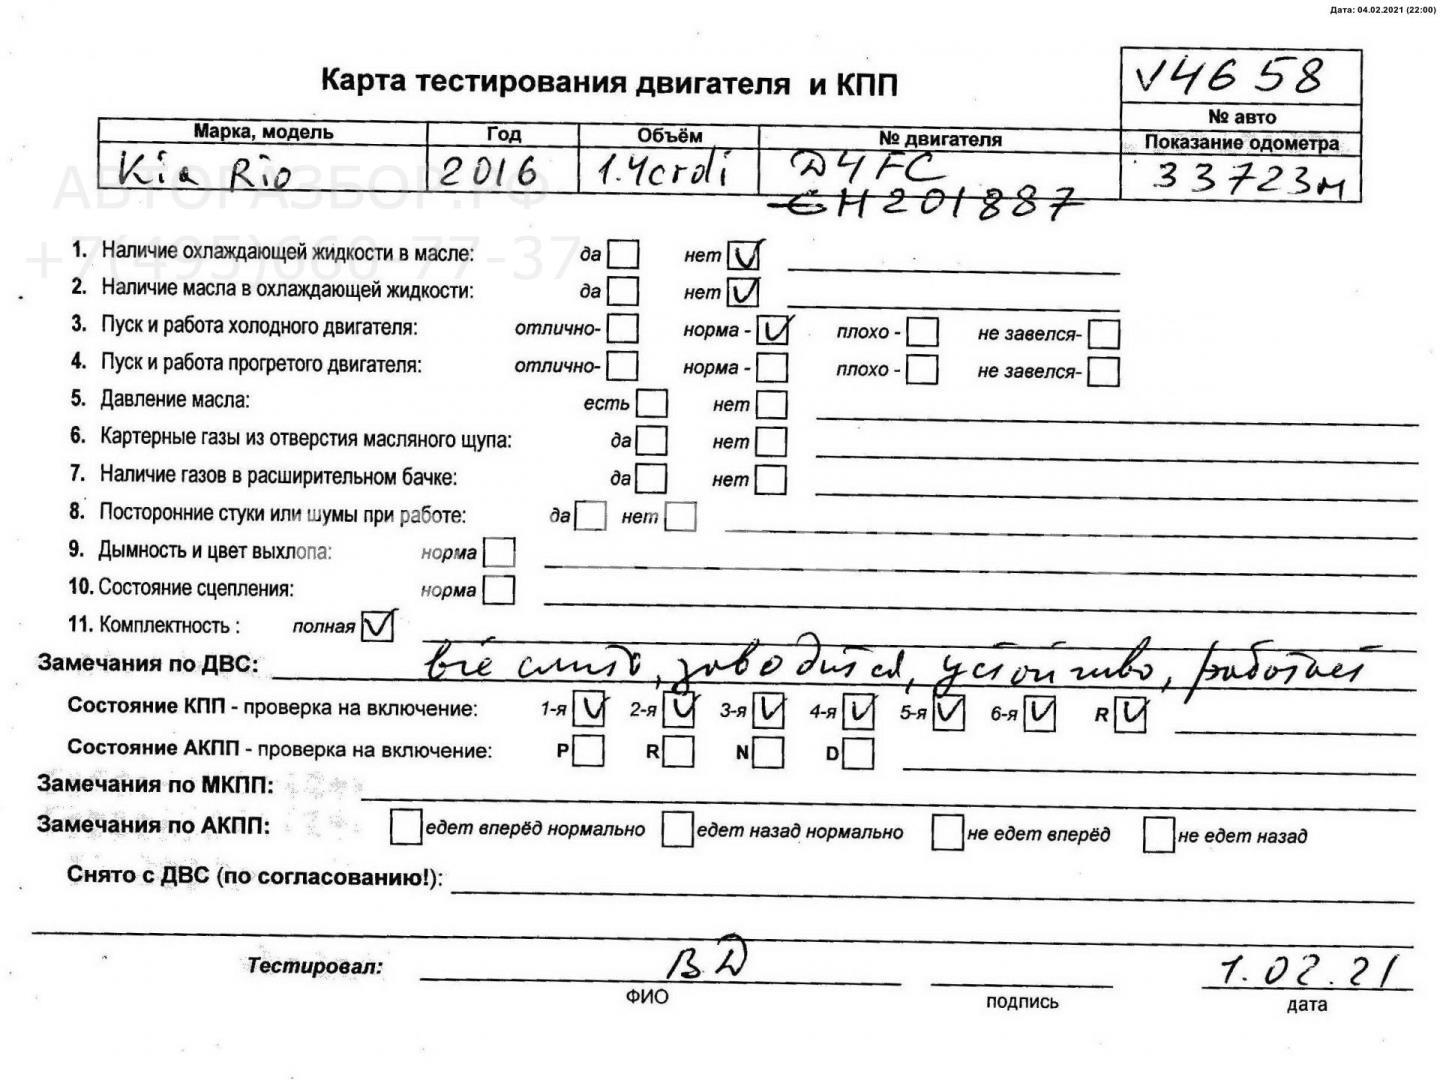 Дата: 04.02.2021 (22:00)
Карта тестирования двигателя и КПП
V4658
№ авто
Марка, модель Год Объём № двигателя Показание одометра
Kia Rio 2016 1.4crdi D4FC 33723м
GH201887
АВТОРАЗБОР.РФ
+7(495)660-77-37
1. Наличие охлаждающей жидкости в масле: да нет
2. Наличие масла в охлаждающей жидкости: да нет
3. Пуск и работа холодного двигателя: отлично- норма - плохо - не завелся-
4. Пуск и работа прогретого двигателя: отлично- норма - плохо - не завелся-
5. Давление масла: есть нет
6. Картерные газы из отверстия масляного щупа: да нет
7. Наличие газов в расширительном бачке: да нет
8. Посторонние стуки или шумы при работе: да нет
9. Дымность и цвет выхлопа: норма
10. Состояние сцепления: норма
11. Комплектность : полная
Замечания по ДВС: всё слито, заводится, устойчиво, работает
Состояние КПП - проверка на включение: 1-я 2-я 3-я 4-я 5-я 6-я R
Состояние АКПП - проверка на включение: P R N D
Замечания по МКПП:
Замечания по АКПП: едет вперёд нормально едет назад нормально не едет вперёд не едет назад
Снято с ДВС (по согласованию!):
Тестировал: ВД 1.02.21
ФИО подпись дата